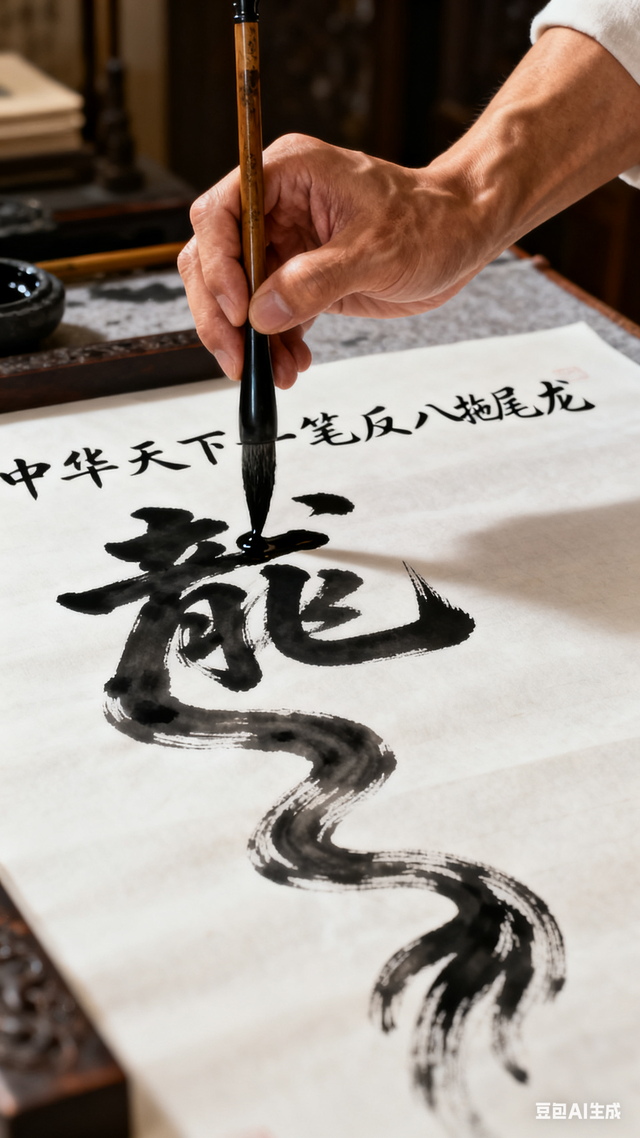 中华天下一笔反八拖尾龙
龍
豆包AI生成